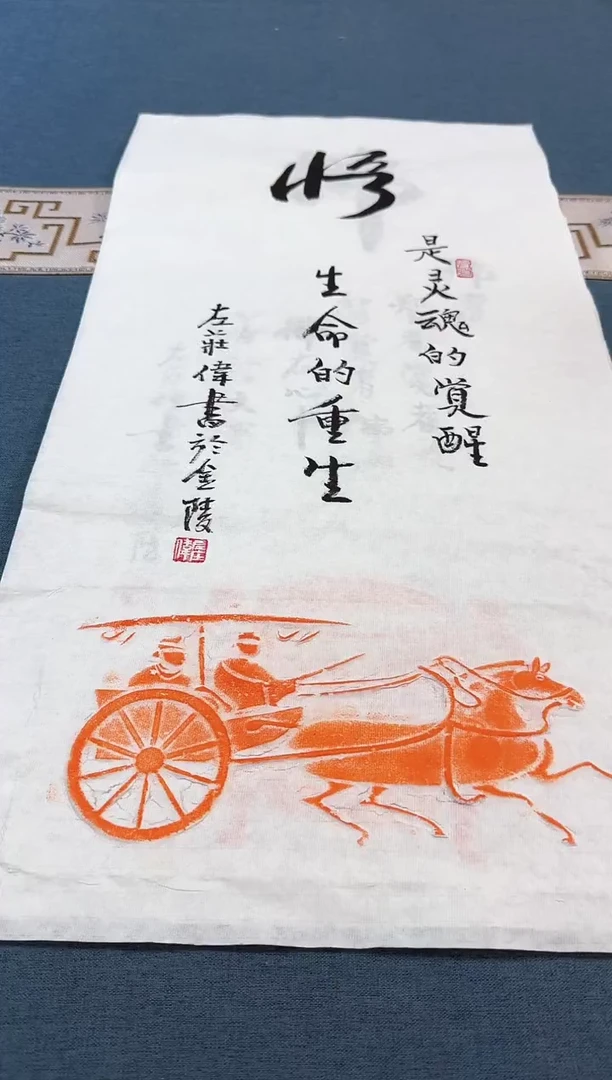 悟
是灵魂的覚醒
生命的重生
左莊偉書於金陵